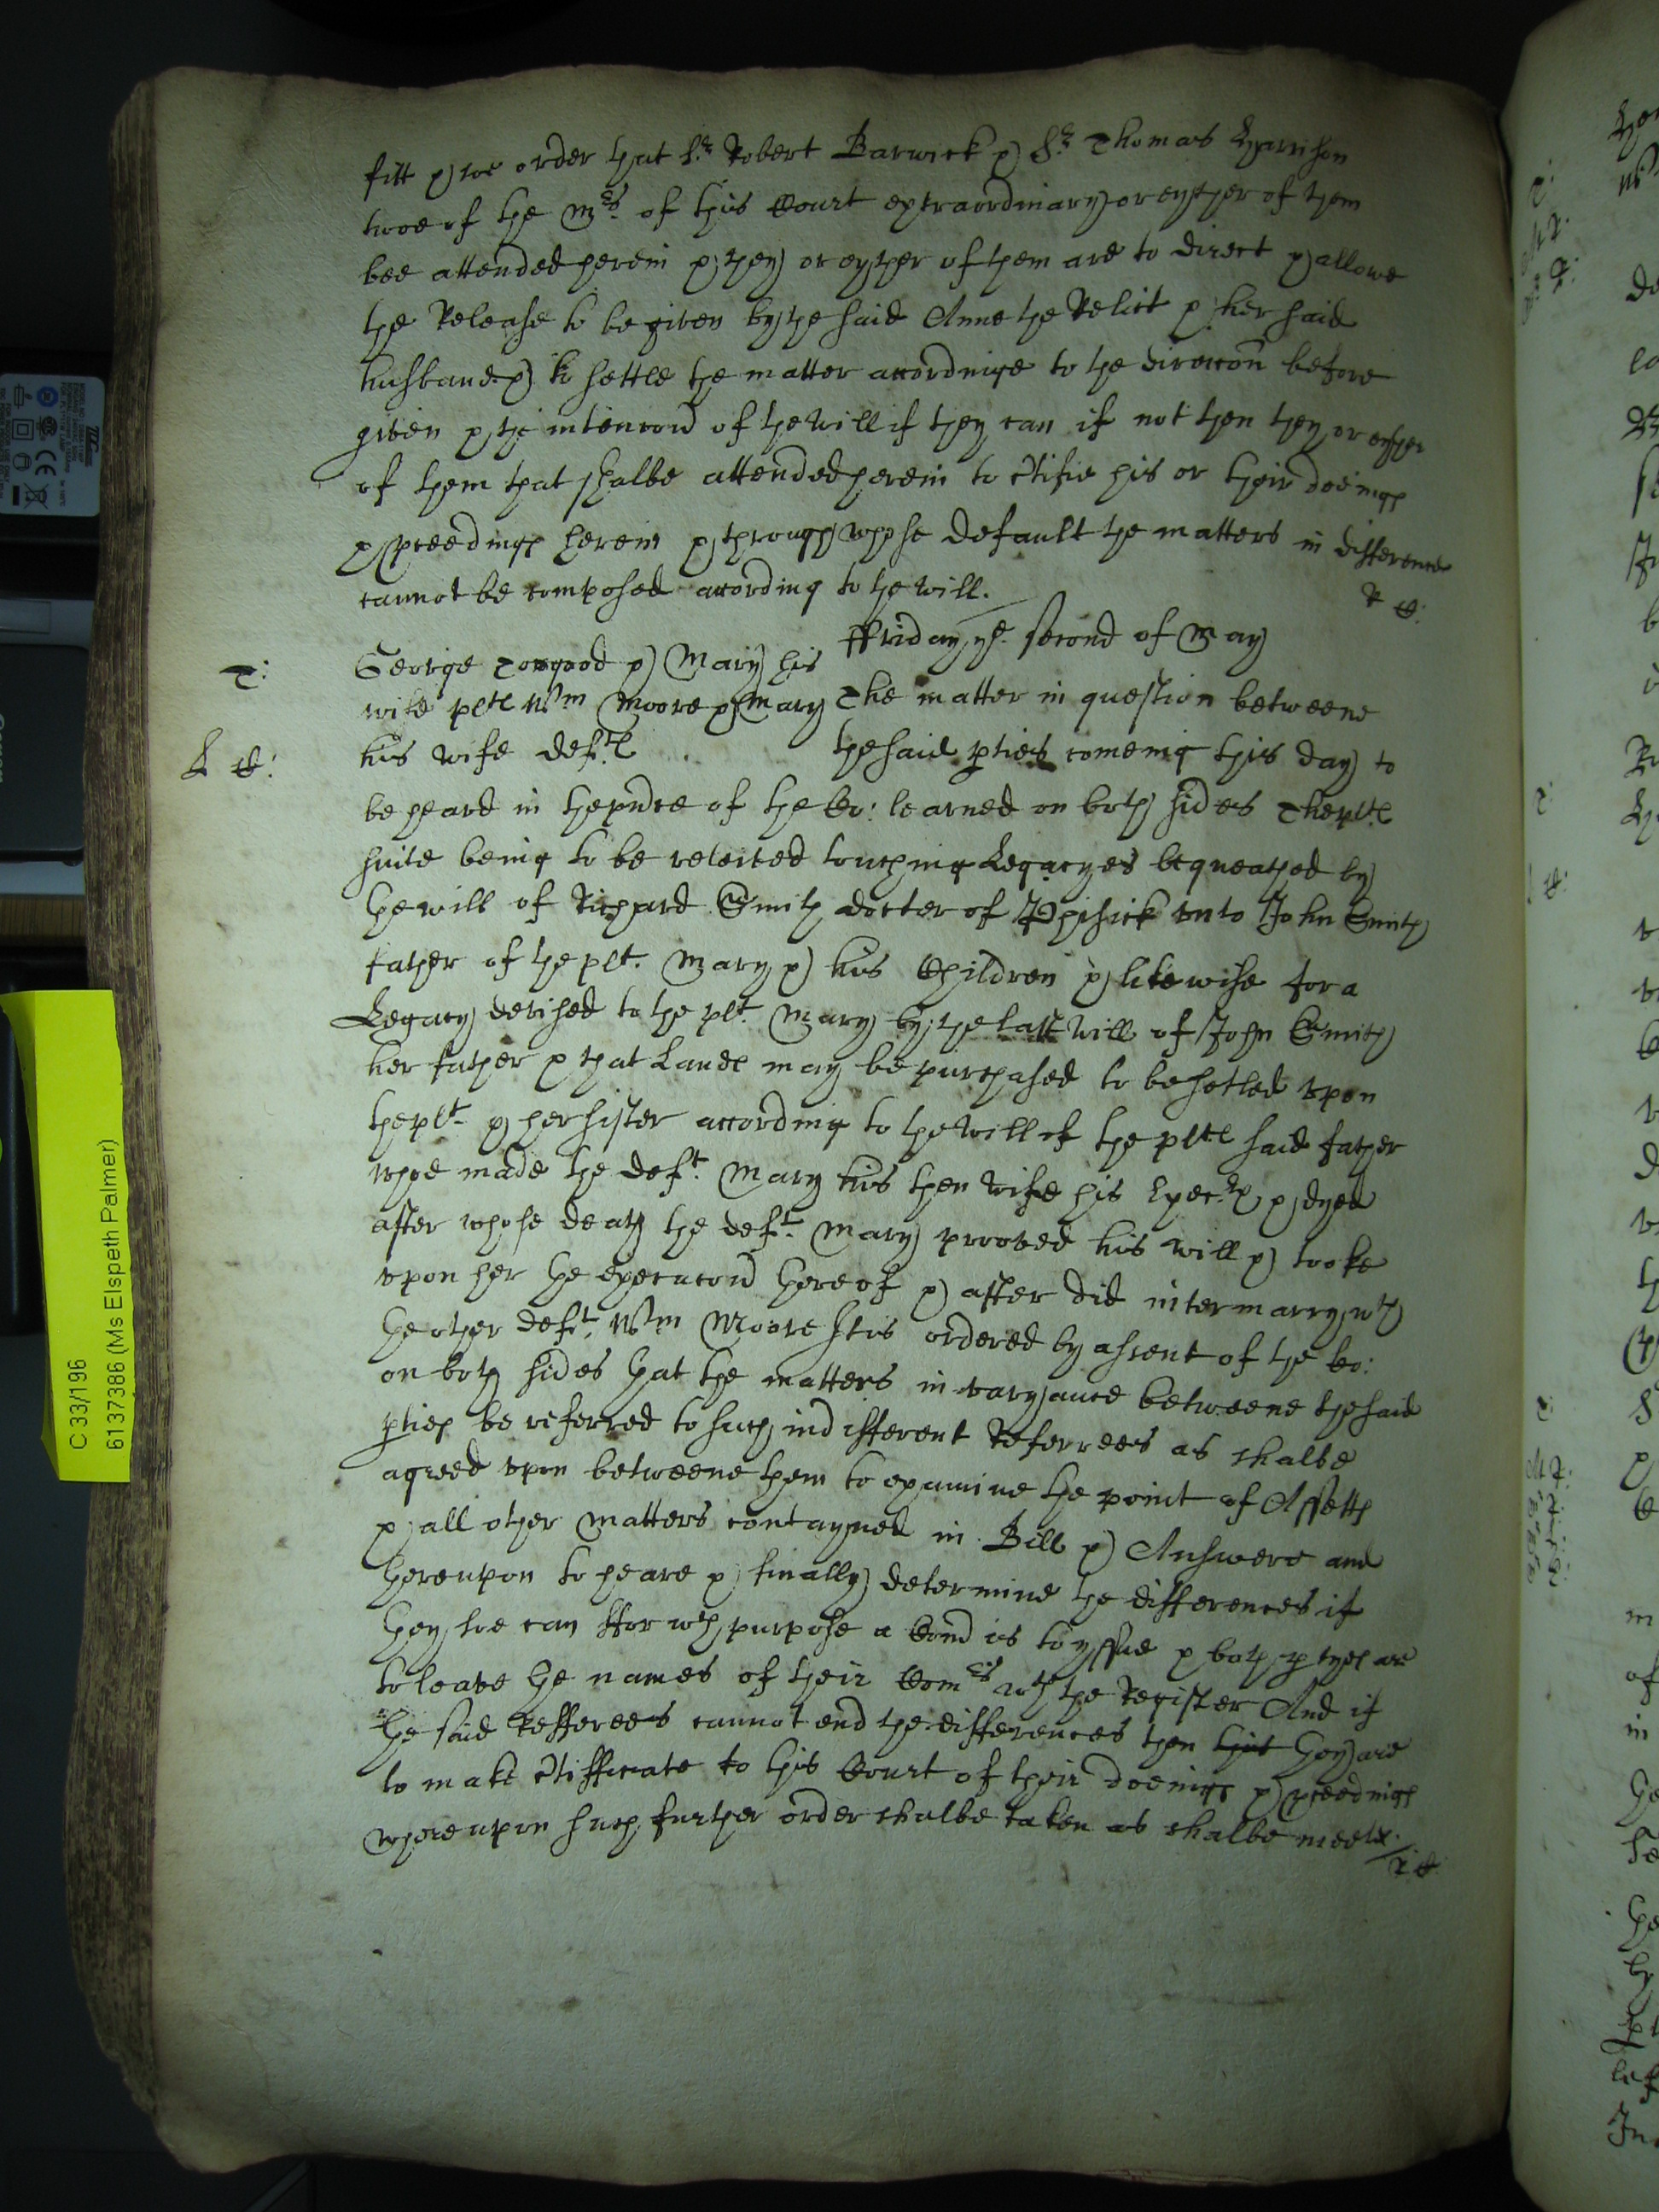 fitt & soe order that Sr. Robert Barwick & Sr. Thomas Harrison
twoe of the Mrs. of this Court extraordinary or eyther of them
bee attended herein & they or eyther of them are to direct & allowe
the Release to be given by the said Anne the Relict & her said
husband & to settle the matter accordinge to the direccon before
given & the intencon of the Will if they can if not then they or eyther
of them that shalbe attended herein to ctifie his or their doeings
& pceedings herein & through whose default the matters in difference
cannot be composed according to the will.
R C:
ffriday ye. second of May
T:
George Towgood & Mary his
wife pltes Wm Moore & Mary
his wife defts
L C:
The matter in question betweene
the said pties comeing this day to
be heard in the pnce of the Co: learned on both sides The pltes
suite being to be releived touching Legacyes bequeathed by
the will of Richard Smith docter of Phisick unto John Smith
father of the plt. Mary & his Children & likewise for a
Legacy devised to the plt. Mary by the last Will of John Smith
her father & that Landes may be purchased to be setled upon
the plt. & her sister according to the Will of the pltes said father
whoe made the deft. Mary his then wife his Execrx. & dyed
after whose death the deft. Mary prooved his will & tooke
upon her the execucon thereof & after did intermarry wth
the other deft. Wm Moore It is ordered by assent of the Co:
on both sides that the matters in varyance betweene the said
pties be referred to such indifferent Referrees as shalbe
agreed upon betweene them to examine the point of Assetts
& all other matters contayned in Bill & Answere and
thereupon to heare & finally determine the differences if
they soe can ffor wch purpose a Comd is to yssue & both ptyes are
to leave the names of their Comrs wth the Register And if
the said Refferees cannot end the differences then this they are
to make ctifficate to this Court of their doeings & pceedings
whereupon such further order shalbe taken as shalbe meete.
R C
C 33/196
6137386 (Ms Elspeth Palmer)